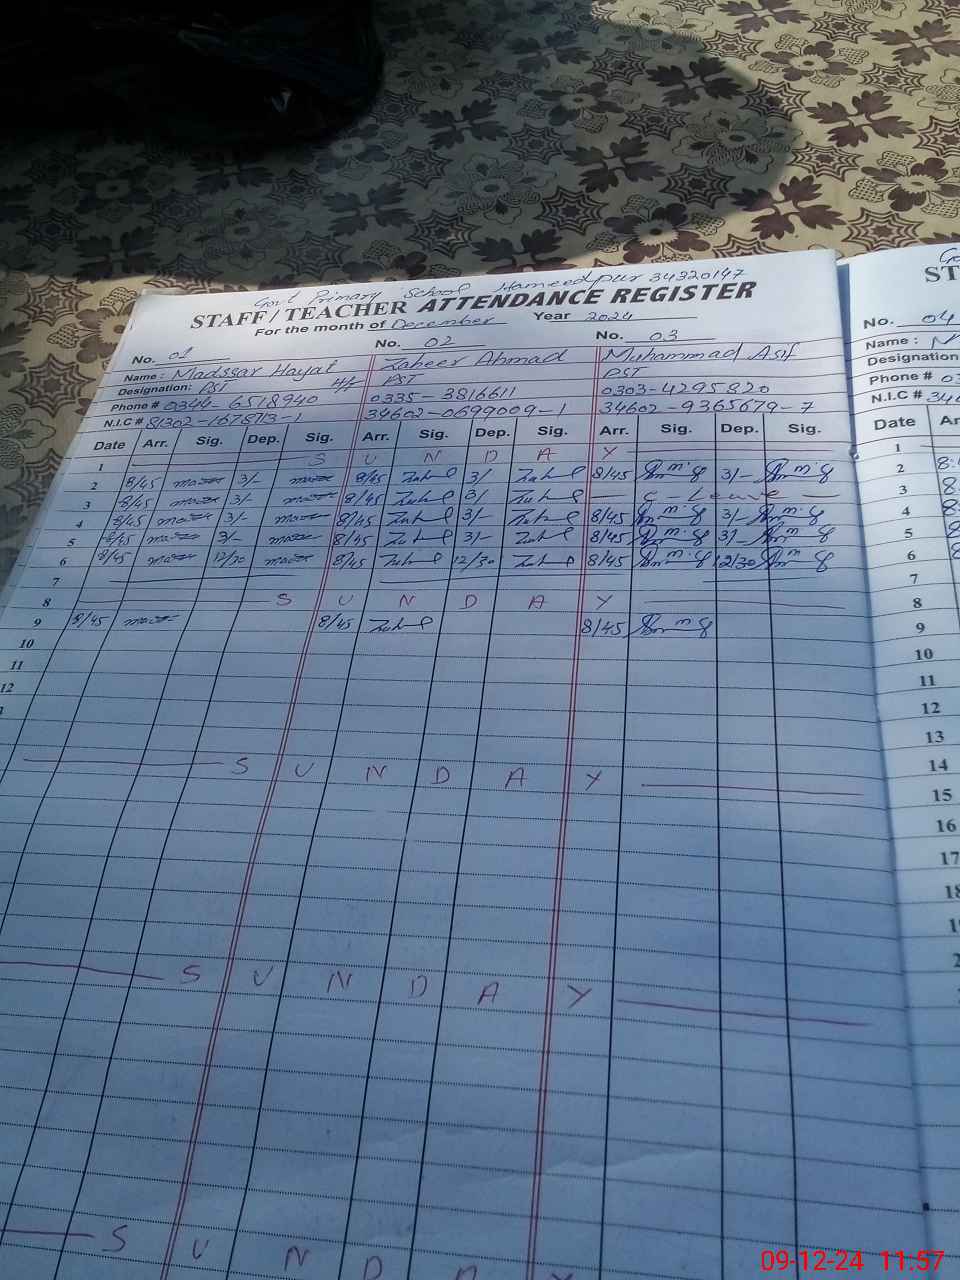 Govt Primary School Hameedpur 34320147
STAFF/TEACHER ATTENDANCE REGISTER
For the month of December Year 2024
No. 01 No. 02 No. 03
Name: Madssar Hayat Zaheer Ahmad Muhammad Asif
Designation: PST PST PST
Phone # 0344-6518940 0335-3816611 0303-4295820
N.I.C # 81302-1675713-1 34602-0699009-1 34602-9365679-7
Date Arr. Sig. Dep. Sig. Arr. Sig. Dep. Sig. Arr. Sig. Dep. Sig.
1 S U N D A Y
2 8/45 3/- 8/45 3/ 8/45 3/-
3 8/45 3/- 8/45 3/ C-Leave
4 8/45 3/- 8/45 3/- 8/45 3/-
5 8/45 3/- 8/45 3/- 8/45 3/-
6 8/45 12/30 8/45 12/30 8/45 12/30
7
8 S U N D A Y
9 8/45 8/45 8/45
10
11
12
S U N D A Y
S U N D A Y
S U N D
ST
No. 04
Name:
Designation
Phone #
N.I.C #
Date Ar
1
2
3
4
5
6
7
8
9
10
11
12
13
14
15
16
17
18
09-12-24 11:57